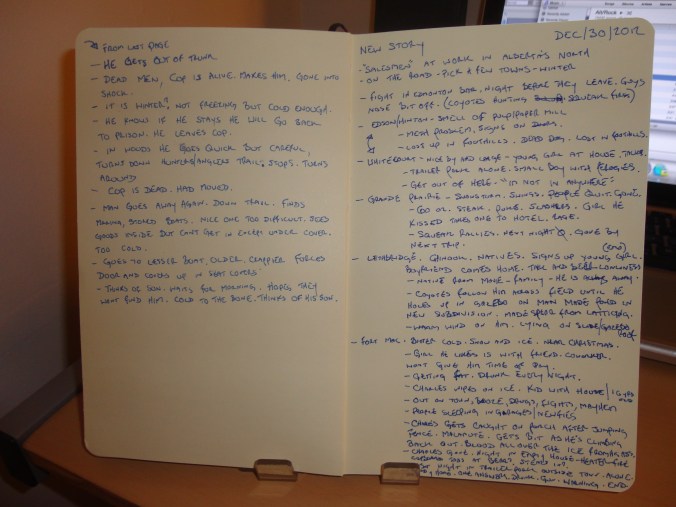 FROM LAST PAGE
- HE GETS OUT OF TRUNK
- DEAD MEN, COP IS ALIVE. MAKES HIM. GONE INTO
SHOCK.
- IT IS WINTER? NOT FREEZING BUT COLD ENOUGH.
- HE KNOWS IF HE STAYS HE WILL GO BACK
TO PRISON. HE LEAVES COP.
- IN WOODS HE GOES QUICK BUT CAREFUL,
TURNS DOWN HUNTERS/ANGLERS TRAIL. STOPS. TURNS
AROUND
- COP IS DEAD. HAD MOVED.
- MAN GOES AWAY AGAIN. DOWN TRAIL. FINDS
MARINA, STORED BOATS. NICE ONE TOO DIFFICULT. SEES
GOODS INSIDE BUT CAN'T GET IN EXCEPT UNDER COVER.
TOO COLD.
- GOES TO LESSER BOAT, OLDER, CRAPPIER FORCES
DOOR AND COVERS UP IN SEAT COVERS
- THINKS OF SON. WAITS FOR MORNING. HOPES THEY
WONT FIND HIM. COLD TO THE BONE. THINKS OF HIS SON.
DEC/30/2012
NEW STORY
- "SALESMEN" AT WORK IN ALBERTA'S NORTH
- ON THE ROAD - PICK A FEW TOWNS - WINTER
- FIGHT IN EDMONTON BAR. NIGHT BEFORE THEY LEAVE. GUYS
NOSE BIT OFF. (COYOTES HUNTING SQUEAK FIRST)
- EDSON/HINTON - SMELL OF PULP/PAPER MILL
- METH PROBLEM, SIGNS ON DOORS.
- LOSS UP IN FOOTHILLS. DEAD DOG. LOST IN FOOTHILLS.
- WHITECOURT - NICE BY AND LARGE - YOUNG GIRL AT HOUSE, TALKS.
- TRAILER PARK ALONE. SMALL BOY WITH PEROGIES.
- GET OUT OF HERE - "IT'S NOT IN ANYWHERE"
- GRANDE PRAIRIE - SNOWSTORM. SWINGS. PEOPLE QUIT.
- STEAK. GIRL HE
KISSED TAKES ONE TO HOTEL. RAGE.
- SQUEAK RALLIES. NEXT NIGHT GONE BY
NEXT TRIP. (END)
- LETHBRIDGE. CHINOOK. NATIVES. SIGNS UP YOUNG GIRL.
BOYFRIEND COMES HOME. TALK AND BEER - LONELINESS
- NATIVE FROM MAKE - FAMILY - HE IS AWAY.
- COYOTES FOLLOW HIM ACROSS FIELD UNTIL HE
HOLES UP IN GAZEBO ON MAN MADE POND IN
NEW SUBDIVISION. MADE SPEAR FROM LATTICING.
- WARM WIND ON HIM. LYING ON GAZEBO
ROOF
- FORT MAC. BITTER COLD. SNOW AND ICE. NEAR CHRISTMAS.
- GIRL HE LIKES IS WITH FRIEND. COWORKER.
WONT GIVE HIM TIME OF DAY.
- GETTING FAT. DRUNK EVERY NIGHT.
- CHARLES WIPES ON ICE. KID WITH HOUSE/16 YRS
OLD
- OUT ON TOWN, BOOZE, DRUGS, FIGHTS, MAYHEM
- PEOPLE SLEEPING IN GARAGES/NEWFIES
- CHARLES GETS CAUGHT ON PORCH AFTER JUMPING
FENCE. MALAMUTE. GETS BIT AS HE'S CLIMBING
BACK OUT. BLOOD ALL OVER THE ICE FROM ASS.
- CHARLES GONE. NIGHT IN EMPTY HOUSE - HEATER - FIRE
NIGHT IN TRAILER PARK OUTSIDE TOWN. ALONE.
HOME. ONE ANSWERS, DRUNK. GUN. WARNING. END